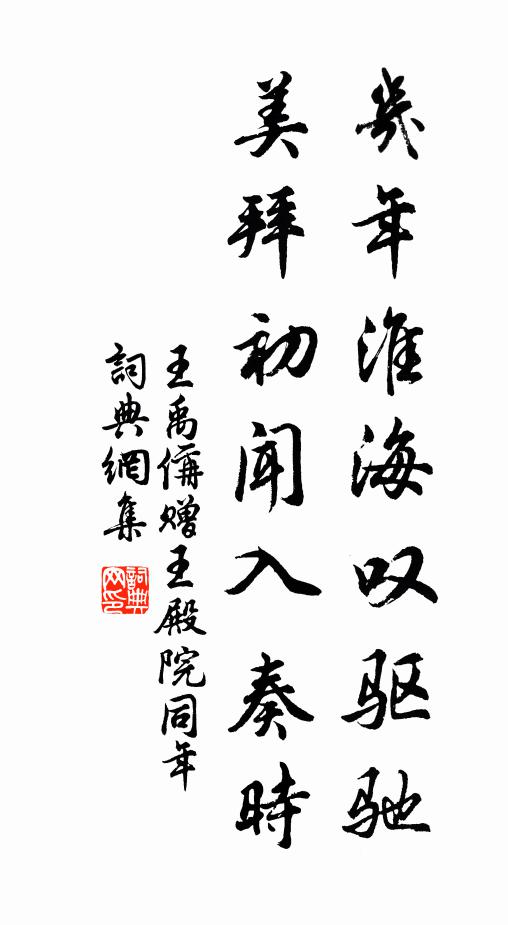 幾年淮海叹驱驰
美拜初闻入奏時
王禹偁赠王殿院同年
詞典網集
詞典网印